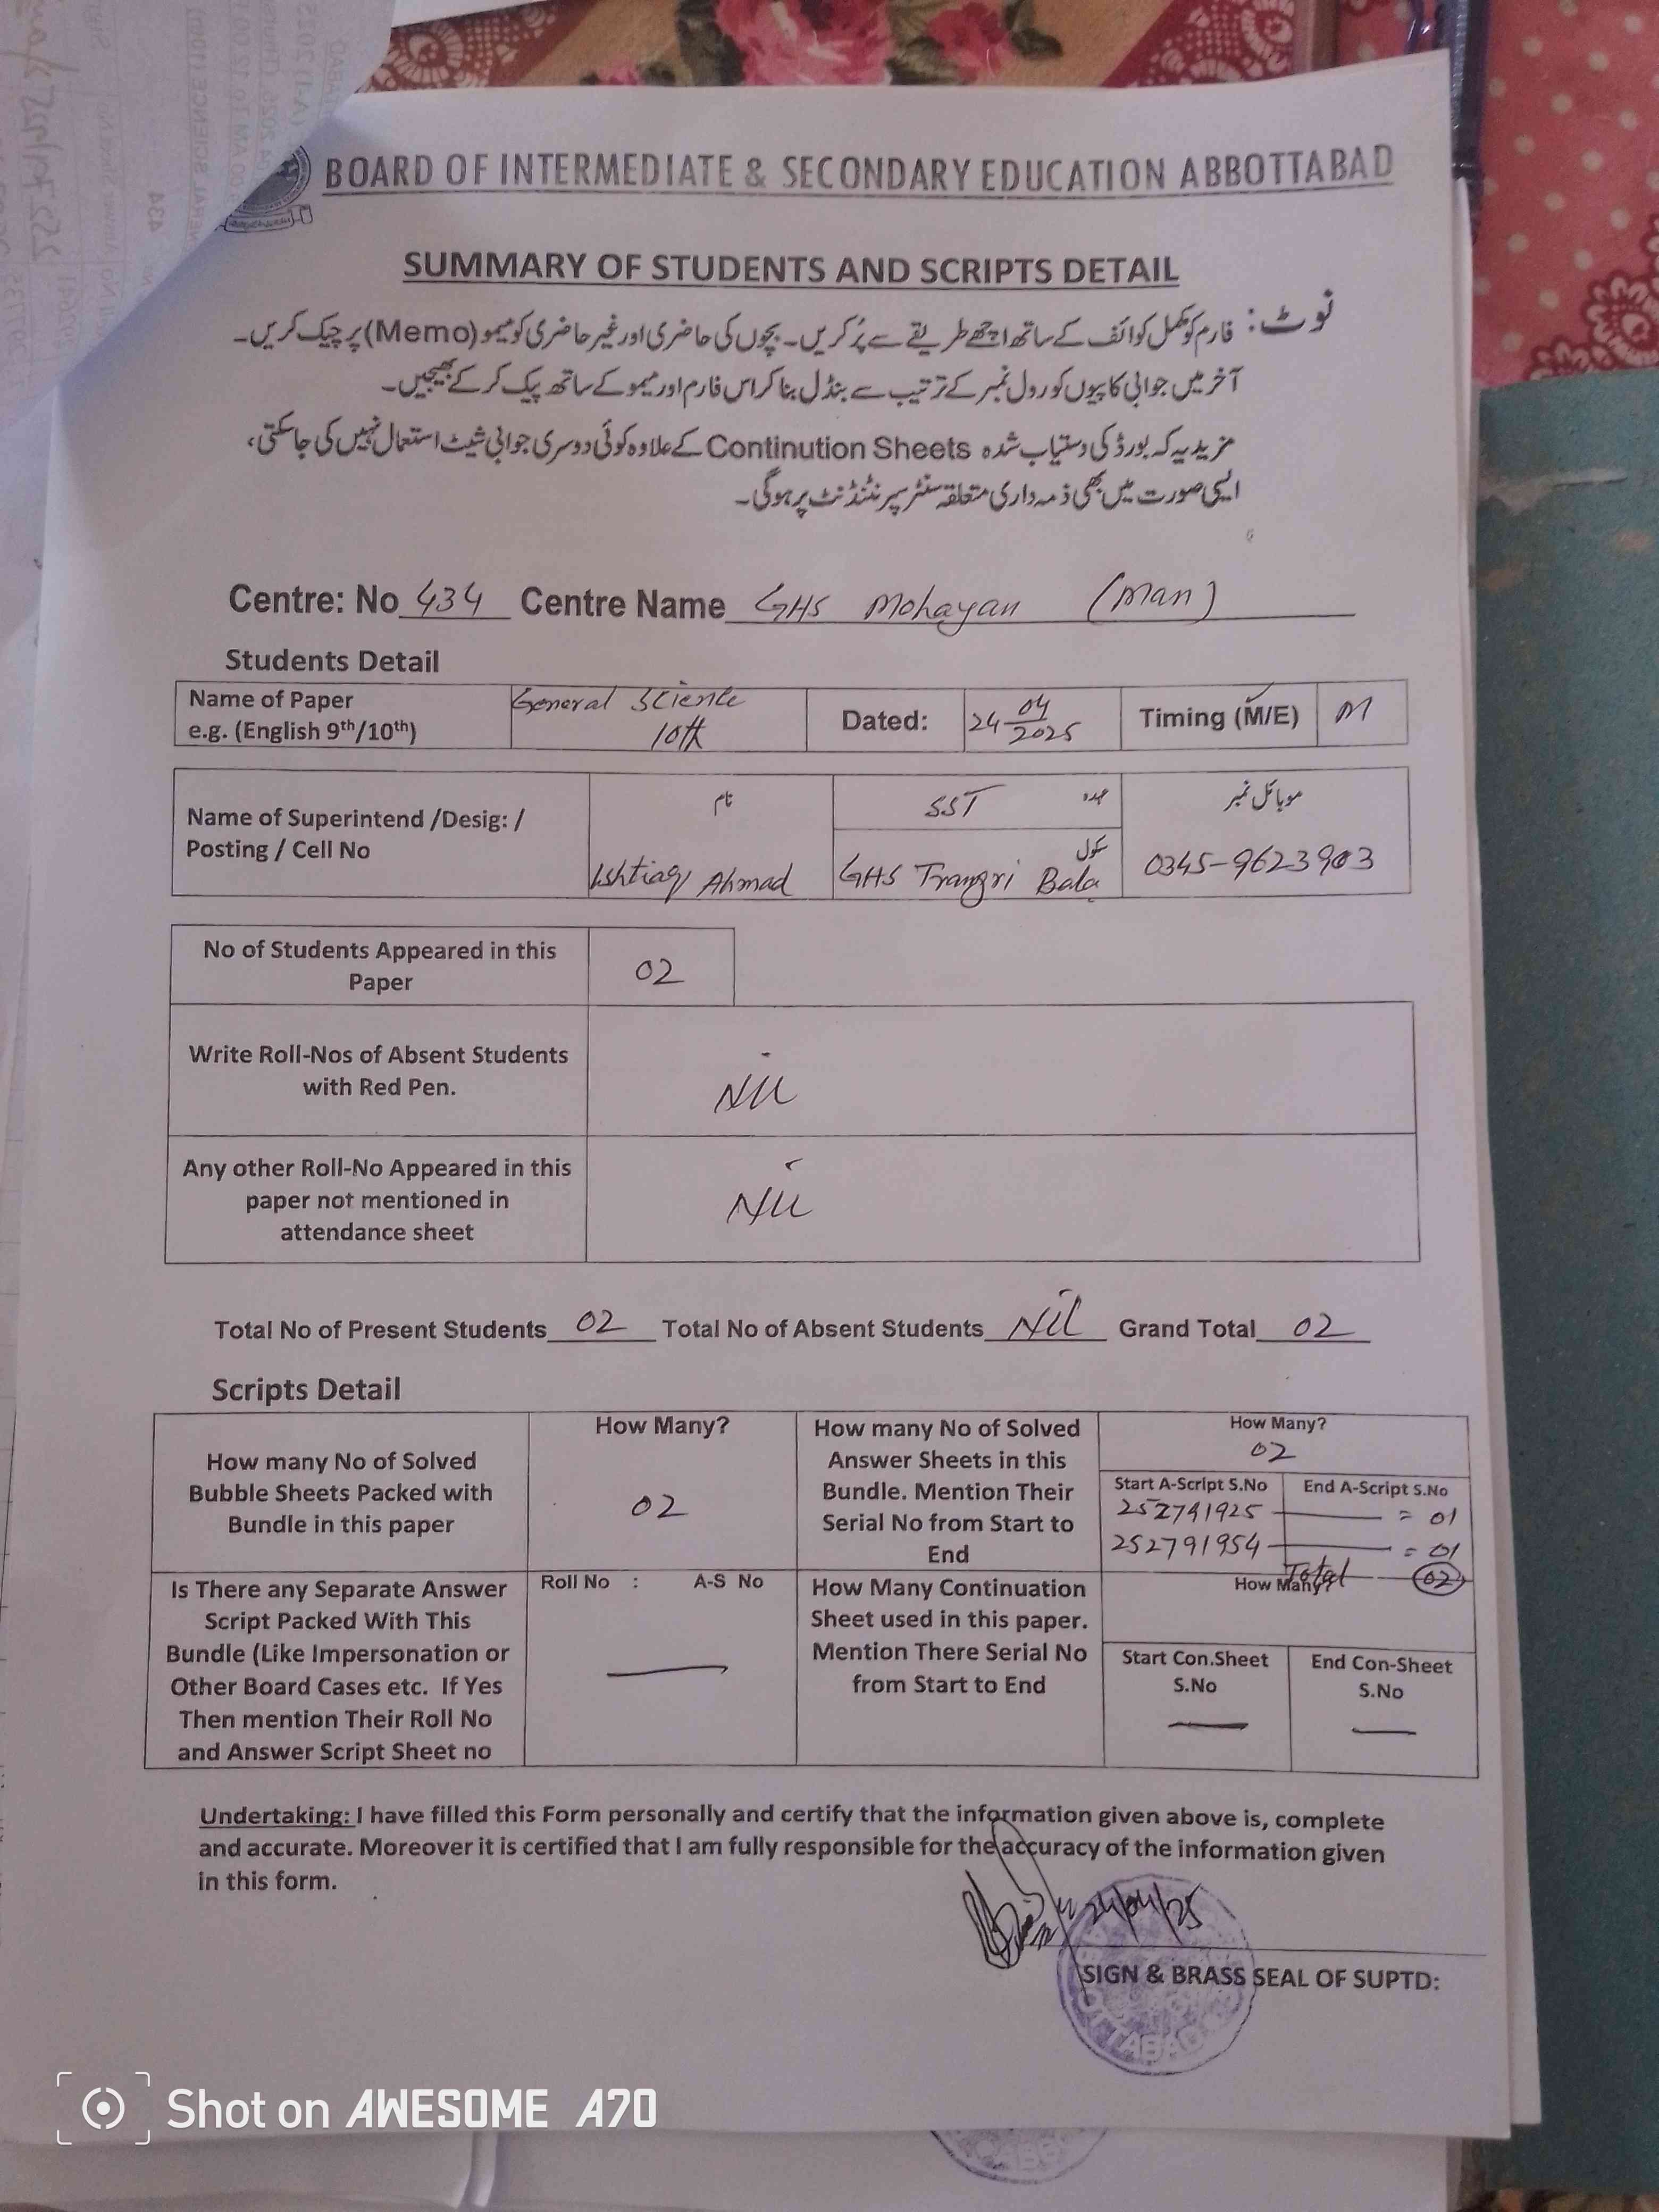 BOARD OF INTERMEDIATE & SECONDARY EDUCATION ABBOTTABAD
SUMMARY OF STUDENTS AND SCRIPTS DETAIL
نوٹ: فارم کو مکمل کوائف کے ساتھ اچھے طریقے سے پُر کریں۔ بچوں کی حاضری اور غیر حاضری کو میمو (Memo) پر چیک کریں۔
آخر میں جوابی کاپیوں کو رول نمبر کے ترتیب سے بنڈل بنا کر اس فارم اور میمو کے ساتھ پیک کر کے بھیجیں۔
مزید یہ کہ بورڈ کی دستیاب شدہ Continution Sheets کے علاوہ کوئی دوسری جوابی شیٹ استعمال نہیں کی جاسکتی،
ایسی صورت میں بھی ذمہ داری متعلقہ سنٹر سپرنٹنڈنٹ پر ہوگی۔
Centre: No 434 Centre Name GHS Mohayan (Man)
Students Detail
Name of Paper
e.g. (English 9th/10th)
General Science
10th
Dated:
24 04/2025
Timing (M/E)
M
Name of Superintend /Desig: /
Posting / Cell No
نام
Ishtiaq Ahmad
SST عہدہ
سکول
GHS Trangri Bala
موبائل نمبر
0345-9623903
No of Students Appeared in this
Paper
02
Write Roll-Nos of Absent Students
with Red Pen.
Nil
Any other Roll-No Appeared in this
paper not mentioned in
attendance sheet
Nil
Total No of Present Students 02 Total No of Absent Students Nil Grand Total 02
Scripts Detail
How many No of Solved
Bubble Sheets Packed with
Bundle in this paper
How Many?
02
How many No of Solved
Answer Sheets in this
Bundle. Mention Their
Serial No from Start to
End
How Many?
02
Start A-Script S.No End A-Script S.No
252791925 — = 01
252791954 — = 01
Total — 02
Is There any Separate Answer
Script Packed With This
Bundle (Like Impersonation or
Other Board Cases etc. If Yes
Then mention Their Roll No
and Answer Script Sheet no
Roll No : A-S No
—
How Many Continuation
Sheet used in this paper.
Mention There Serial No
from Start to End
How Many?
Start Con.Sheet
S.No
—
End Con-Sheet
S.No
—
Undertaking: I have filled this Form personally and certify that the information given above is, complete
and accurate. Moreover it is certified that I am fully responsible for the accuracy of the information given
in this form.
24/04/25
SIGN & BRASS SEAL OF SUPTD:
Shot on AWESOME A70